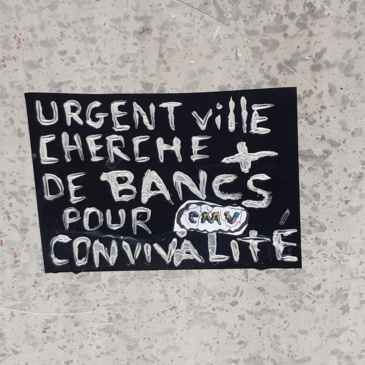 URGENT ville
CHERCHE +
DE BANCS
POUR CMV
CONVIVALITÉ